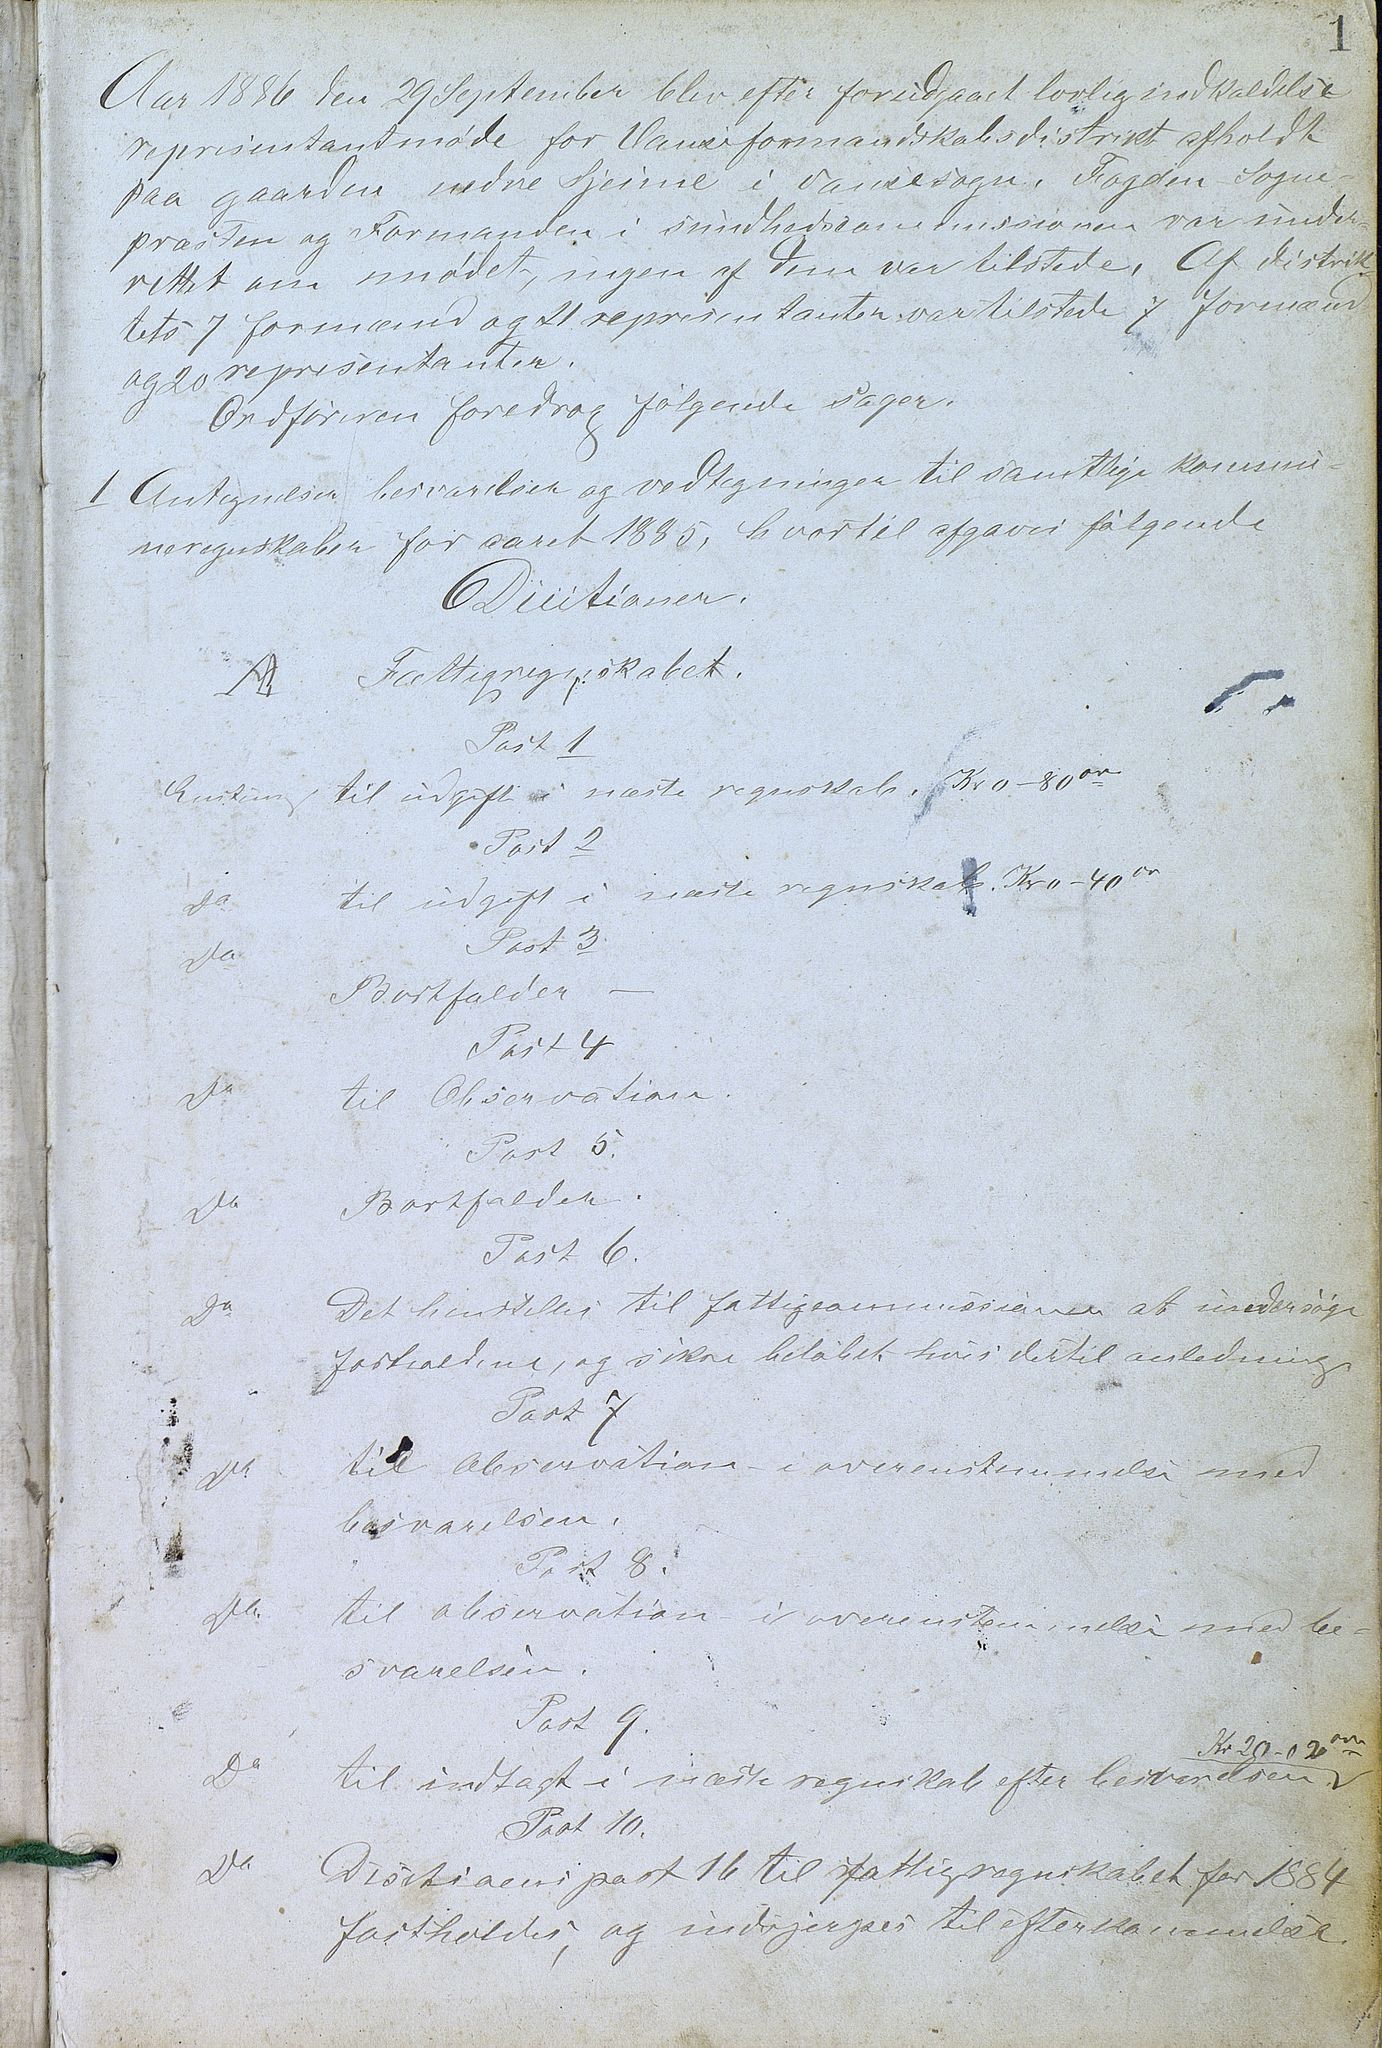 1
Aar 1886 den 29 September blev efter foreudgaaet lovlig indkaldelse
representantmøde for Vanseformandskabsdistrikt afholdt
paa gaarden nedre Hjeime i Vansesogn. Fogden Sogne-
præsten og Formanden i sundhedscommissionen var under-
rettet om mødet, ingen af dem var tilstede. Af distrik-
tets 7 formænd og 21 representanter var tilstede 7 formænd
og 20 representanter.
Ordføreren foredrog følgende sager.
1 Antegnelser besvarelser og vedtegninger til samtlige kommu-
neregnskaber for aaret 1885, hvortil afgaves følgende
Dicitioner.
A Fattigregnskabet.
Post 1
Enstemig til udgift i næste regnskab. Kr 0-80 ør
Post 2
Do til udgift i næste regnskab. Kr 0-40 ør
Post 3
Do
Bortfalder —
Post 4
Do til Observation.
Post 5.
Do Bortfalder.
Post 6.
Do Det henstilles til fattigcommissionen at undersøge
forholdene, og sikre beløbet hvis dertil anledning
Post 7
Do til Observation i overenstemmelse med
besvarelsen.
Post 8.
Do til observation i overenstemmelse med be-
svarelsen.
Post 9.
Kr 20-02 øre
Do til indtægt i næste regnskab efter besvarelsen
Post 10.
Do Disitioens post 16 til fattigregnskabet for 1884
fastholdes, og indsjerpes til efterkommelse.